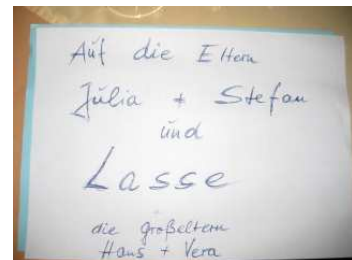 Auf die Eltern
Julia + Stefan
und
Lasse
die großeltern
Hans + Vera